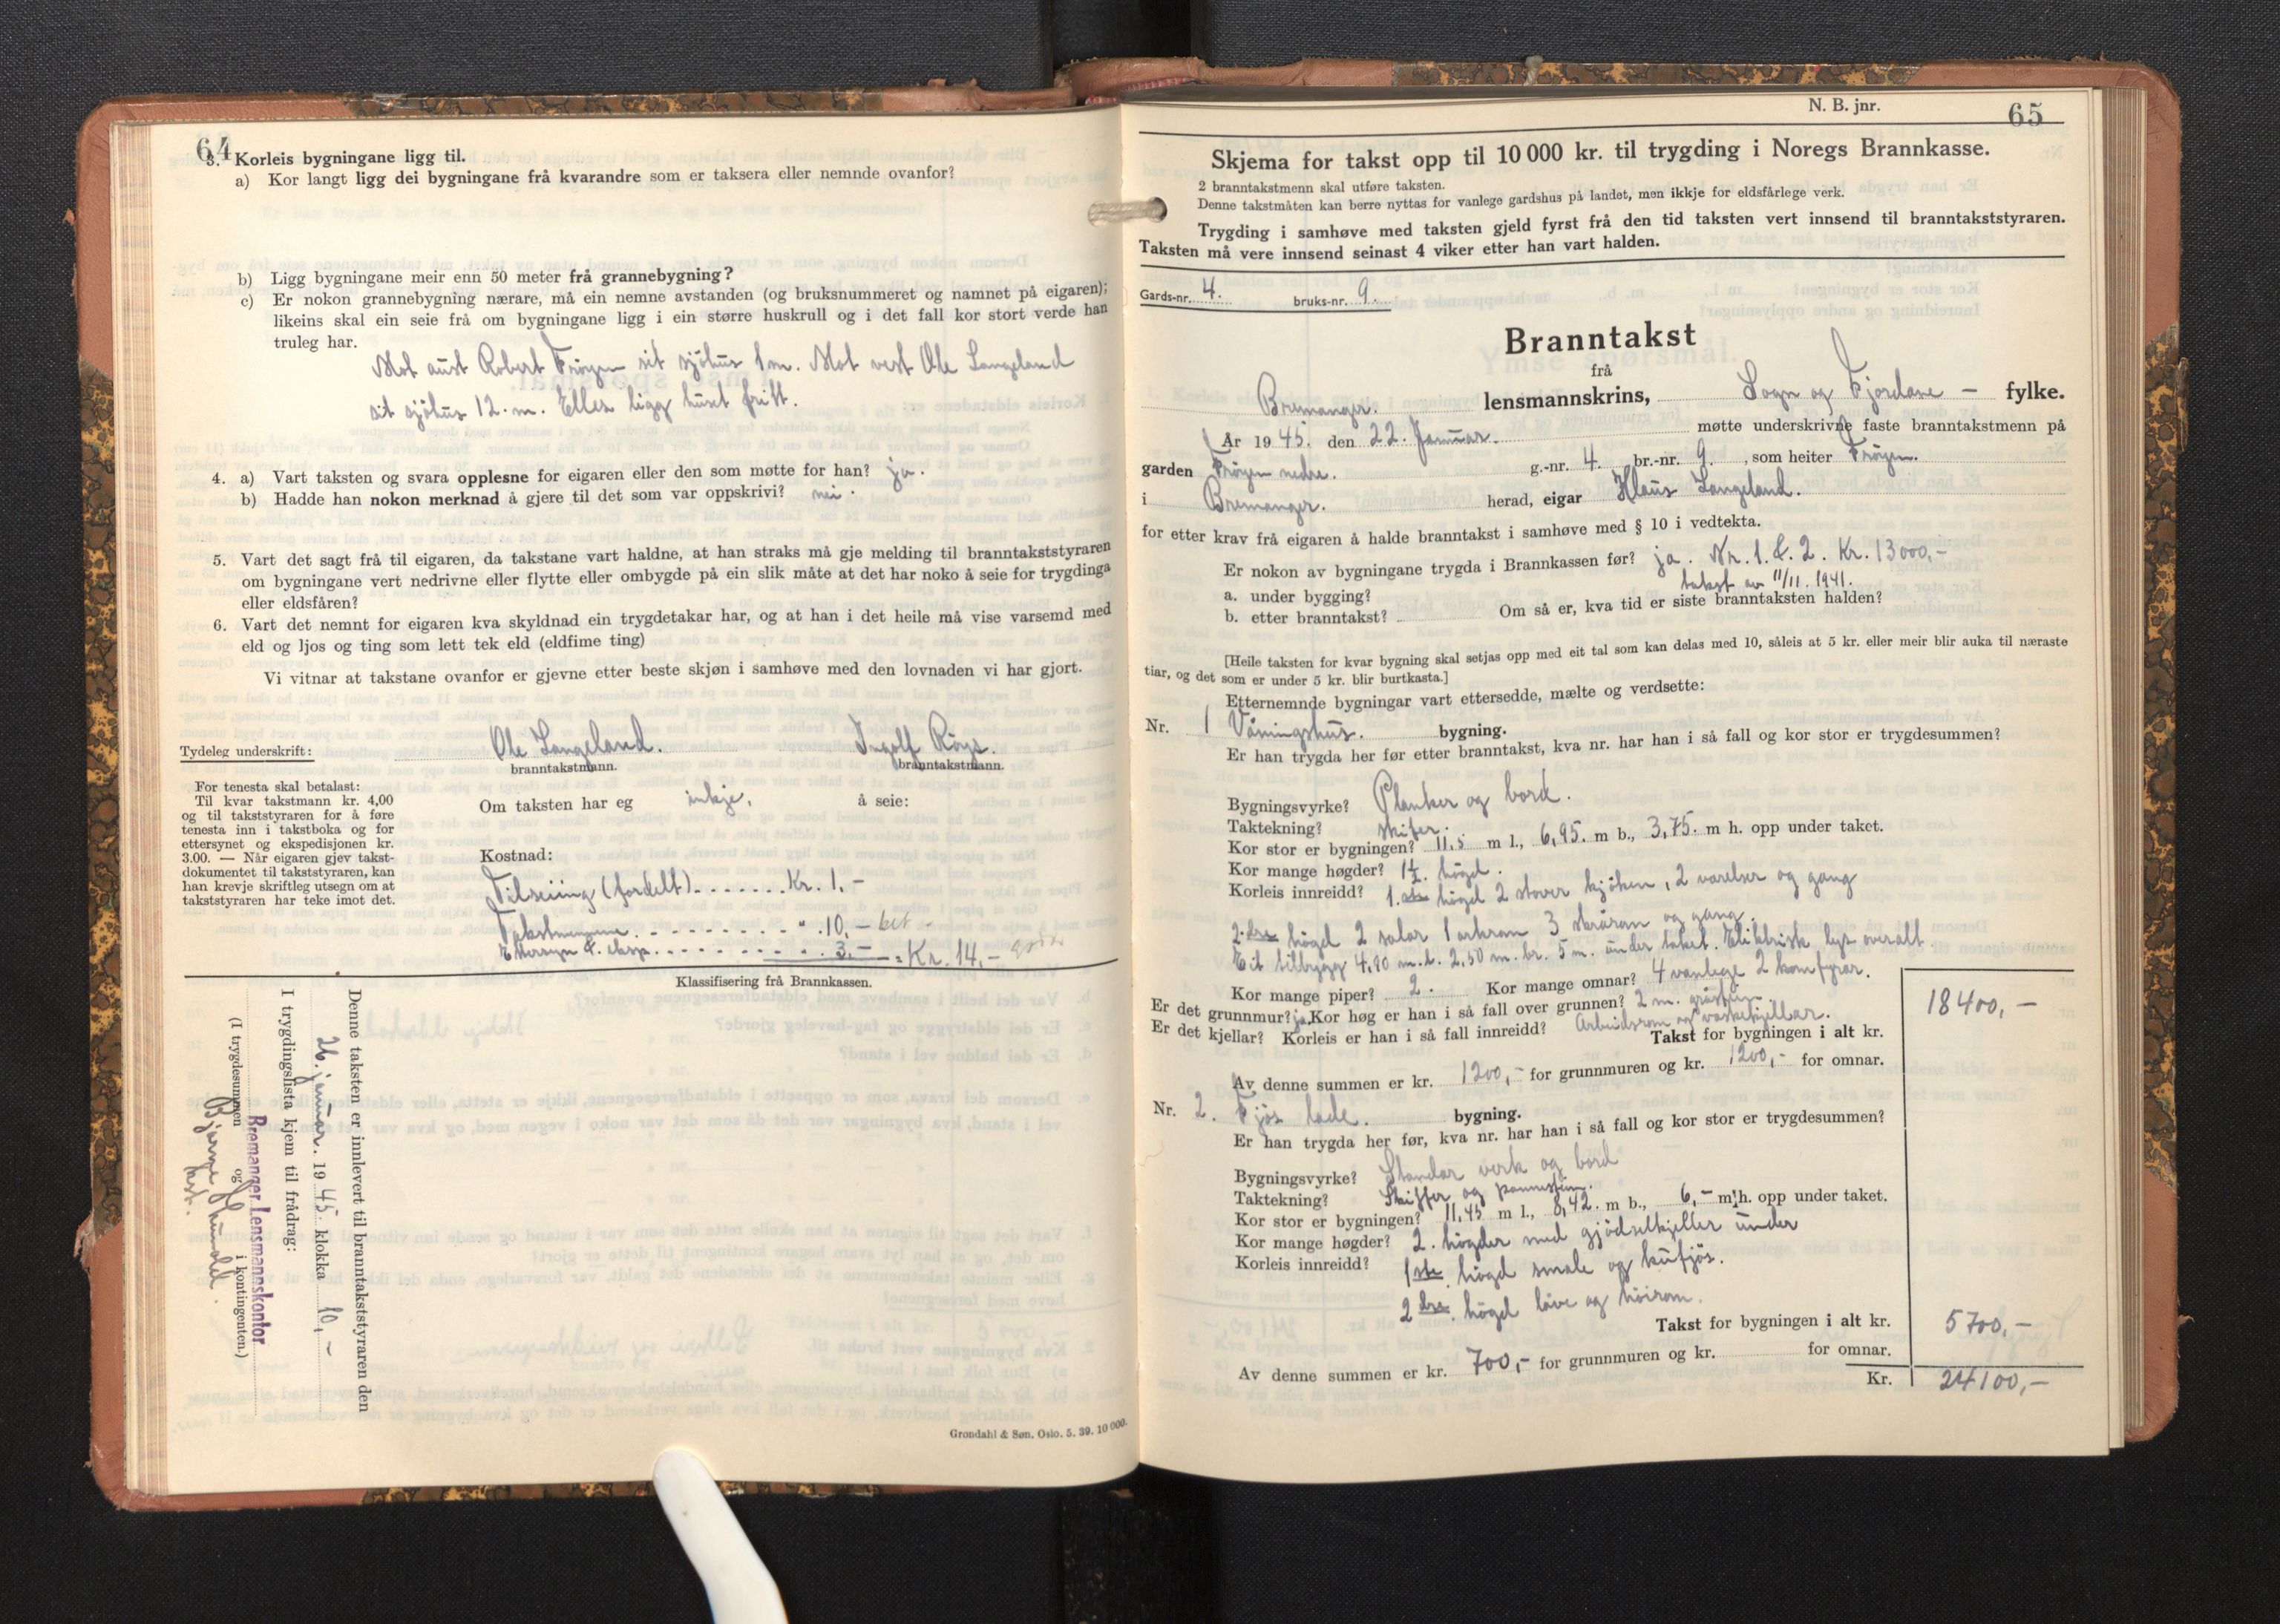 64
3. Korleis bygningane ligg til.
a) Kor langt ligg dei bygningane frå kvarandre som er taksera eller nemnde ovanfor?
b) Ligg bygningane meir enn 50 meter frå grannebygning?
c) Er nokon grannebygning nærare, må ein nemne avstanden (og bruksnummeret og namnet på eigaren);
likeins skal ein seie frå om bygningane ligg i ein større huskrull og i det fall kor stort verde han
truleg har.
Mot aust Robert Frøyen sit sjöhus 1 m. Mot vest Ole Langeland
sit sjöhus 12. m. Elles ligg huset fritt.
4. a) Vart taksten og svara opplesne for eigaren eller den som møtte for han? ja.
b) Hadde han nokon merknad å gjere til det som var oppskrivi? nei.
5. Vart det sagt frå til eigaren, da takstane vart haldne, at han straks må gje melding til branntakststyraren
om bygningane vert nedrivne eller flytte eller ombygde på ein slik måte at det har noko å seie for trygdinga
eller eldsfåren?
6. Vart det nemnt for eigaren kva skyldnad ein trygdetakar har, og at han i det heile må vise varsemd med
eld og ljos og ting som lett tek eld (eldfime ting)
Vi vitnar at takstane ovanfor er gjevne etter beste skjøn i samhøve med den lovnaden vi har gjort.
Tydeleg underskrift: Ole Langeland. Ingolf Röys.
branntakstmann. branntakstmann.
For tenesta skal betalast:
Til kvar takstmann kr. 4,00
og til takststyraren for å føre
tenesta inn i takstboka og for
ettersynet og ekspedisjonen kr.
3.00. — Når eigaren gjev takst-
dokumentet til takststyraren, kan
han krevje skriftleg utsegn om at
takststyraren har teke imot det.
Om taksten har eg inkje, å seie:
Kostnad:
Tilseiing (fordelt) . . . . . . . Kr. 1,-
Takstmennene . . . . . . . . . " . 10,- bet -
Ettersyn & eksp. . . . . . . . . . 3,- = Kr. 14,-
Klassifisering frå Brannkassen.
Denne taksten er innlevert til branntakststyraren den
26. januar. 1945. klokka 10,-
I trygdingslista kjem til frådrag:
Bremanger Lensmannskontor
(I trygdesummen og i kontingenten.)
Grondahl & Søn. Oslo. 5. 39. 10 000.
N. B. jnr. 65
Skjema for takst opp til 10 000 kr. til trygding i Noregs Brannkasse.
2 branntakstmenn skal utføre taksten.
Denne takstmåten kan berre nyttas for vanlege gardshus på landet, men ikkje for eldsfårlege verk.
Trygding i samhøve med taksten gjeld fyrst frå den tid taksten vert innsend til branntakststyraren.
Taksten må vere innsend seinast 4 viker etter han vart halden.
Gards-nr. 4. bruks-nr. 9.
Branntakst
frå
Bremanger. lensmannskrins, Sogn og Fjordane - fylke.
År 1945. den 22. Januar. møtte underskrivne faste branntakstmenn på
garden Frøyen nedre. g.-nr. 4. br.-nr. 9. , som heiter Frøyen.
i Bremanger. herad, eigar Klaus Langeland.
for etter krav frå eigaren å halde branntakst i samhøve med § 10 i vedtekta.
Er nokon av bygningane trygda i Brannkassen før? ja. Nr. 1. & 2. Kr. 13000,-
takst av 11/11. 1941.
a. under bygging?
b. etter branntakst? Om så er, kva tid er siste branntaksten halden?
[Heile taksten for kvar bygning skal setjas opp med eit tal som kan delas med 10, såleis at 5 kr. eller meir blir auka til næraste
tiar, og det som er under 5 kr. blir burtkasta.]
Etternemnde bygningar vart ettersedde, mælte og verdsette:
Nr. 1 Våningshus. bygning.
Er han trygda her før etter branntakst, kva nr. har han i så fall og kor stor er trygdesummen?
Bygningsvyrke? Planker og bord.
Taktekning? skifer.
Kor stor er bygningen? 11.5 m l., 6,95. m b., 3,75. m h. opp under taket.
Kor mange høgder? 1½. högd.
Korleis innreidd? 1.ste högd 2 stover kjöken, 2 varelser og gang
2.dre högd 2 salar 1 arkrom 3 skrårom og gang.
Eit tilbygg 4,90 m.l. 2,50 m. br. 5 m. under taket. Elektrisk lys overalt
Kor mange piper? 2. Kor mange omnar? 4 vanlege 2 komfyrar.
Er det grunnmur? ja. Kor høg er han i så fall over grunnen? 2 m. gråstein.
Er det kjellar? Korleis er han i så fall innreidd? Arbeidsrom og vaskekjellar.
Takst for bygningen i alt kr. 18400,-
Av denne summen er kr. 1200,- for grunnmuren og kr. 1200,- for omnar.
Nr. 2. Fjös lade. bygning.
Er han trygda her før, kva nr. har han i så fall og kor stor er trygdesummen?
Bygningsvyrke? Stendar verk og bord
Taktekning? Skiffer og pannestein.
Kor stor er bygningen? 11,45 m l., 8,42. m b., 6,- m h. opp under taket.
Kor mange høgder? 2. högder med gjödselkjeller under
Korleis innreidd? 1ste högd smale og kufjös.
2dre. högd löve og höirom.
Takst for bygningen i alt kr. 5700,-
Av denne summen er kr. 700,- for grunnmuren og kr. for omnar.
Kr. 24100,-